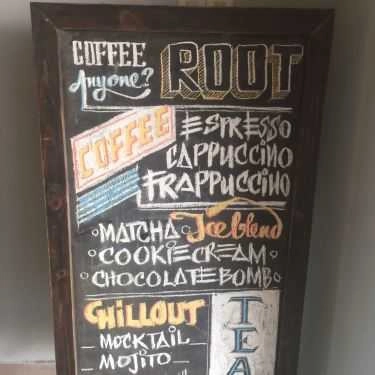 COFFEE
Anyone?
ROOT
COFFEE
ESPRESSO
CAPPUCCINO
FRAPPUCCINO
Ice blend
MATCHA
COOKIE CREAM
CHOCOLATE BOMB
CHILLOUT
MOCKTAIL
MOJITO
TEA